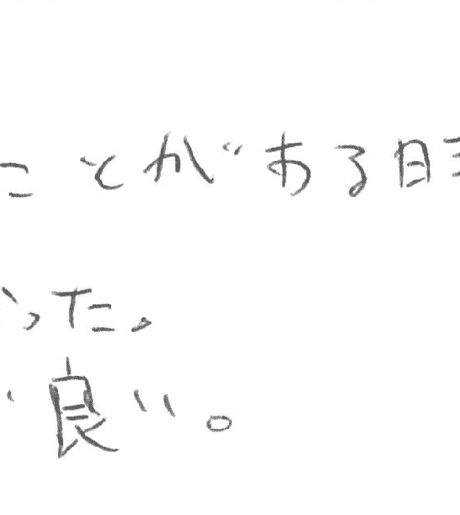 ことがある日
った。
良い。